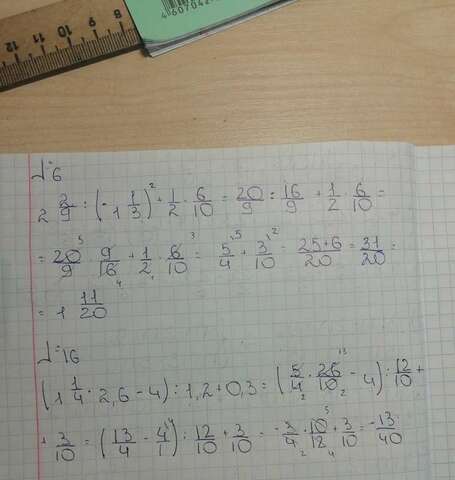 12 11 10 9 8
4607042
№6
2 2/9 : (-1 1/3)² + 1/2 · 6/10 = 20/9 : 16/9 + 1/2 · 6/10 =
= 20/9 · 9/16 + 1/2 · 6/10 = 5/4 + 3/10 = 25+6/20 = 31/20 =
= 1 11/20
№16
(1 1/4 · 2,6 - 4) : 1,2 + 0,3 = (5/4 · 26/10 - 4) : 12/10 +
+ 3/10 = (13/4 - 4/1) : 12/10 + 3/10 = -3/4 · 10/12 + 3/10 = -13/40